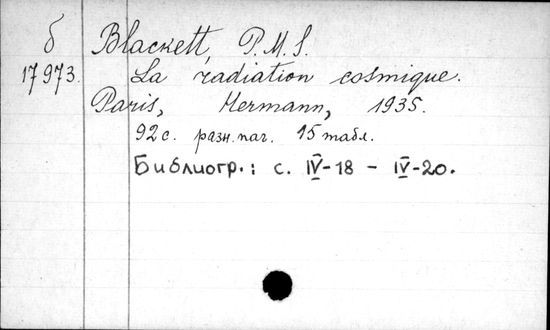 б Blackett, P.M.S.
17973. La radiation cosmique.
Paris, Hermann, 1935.
92 с. разн. паг. 15 табл.
Библиогр.: с. IV-18 - IV-20.